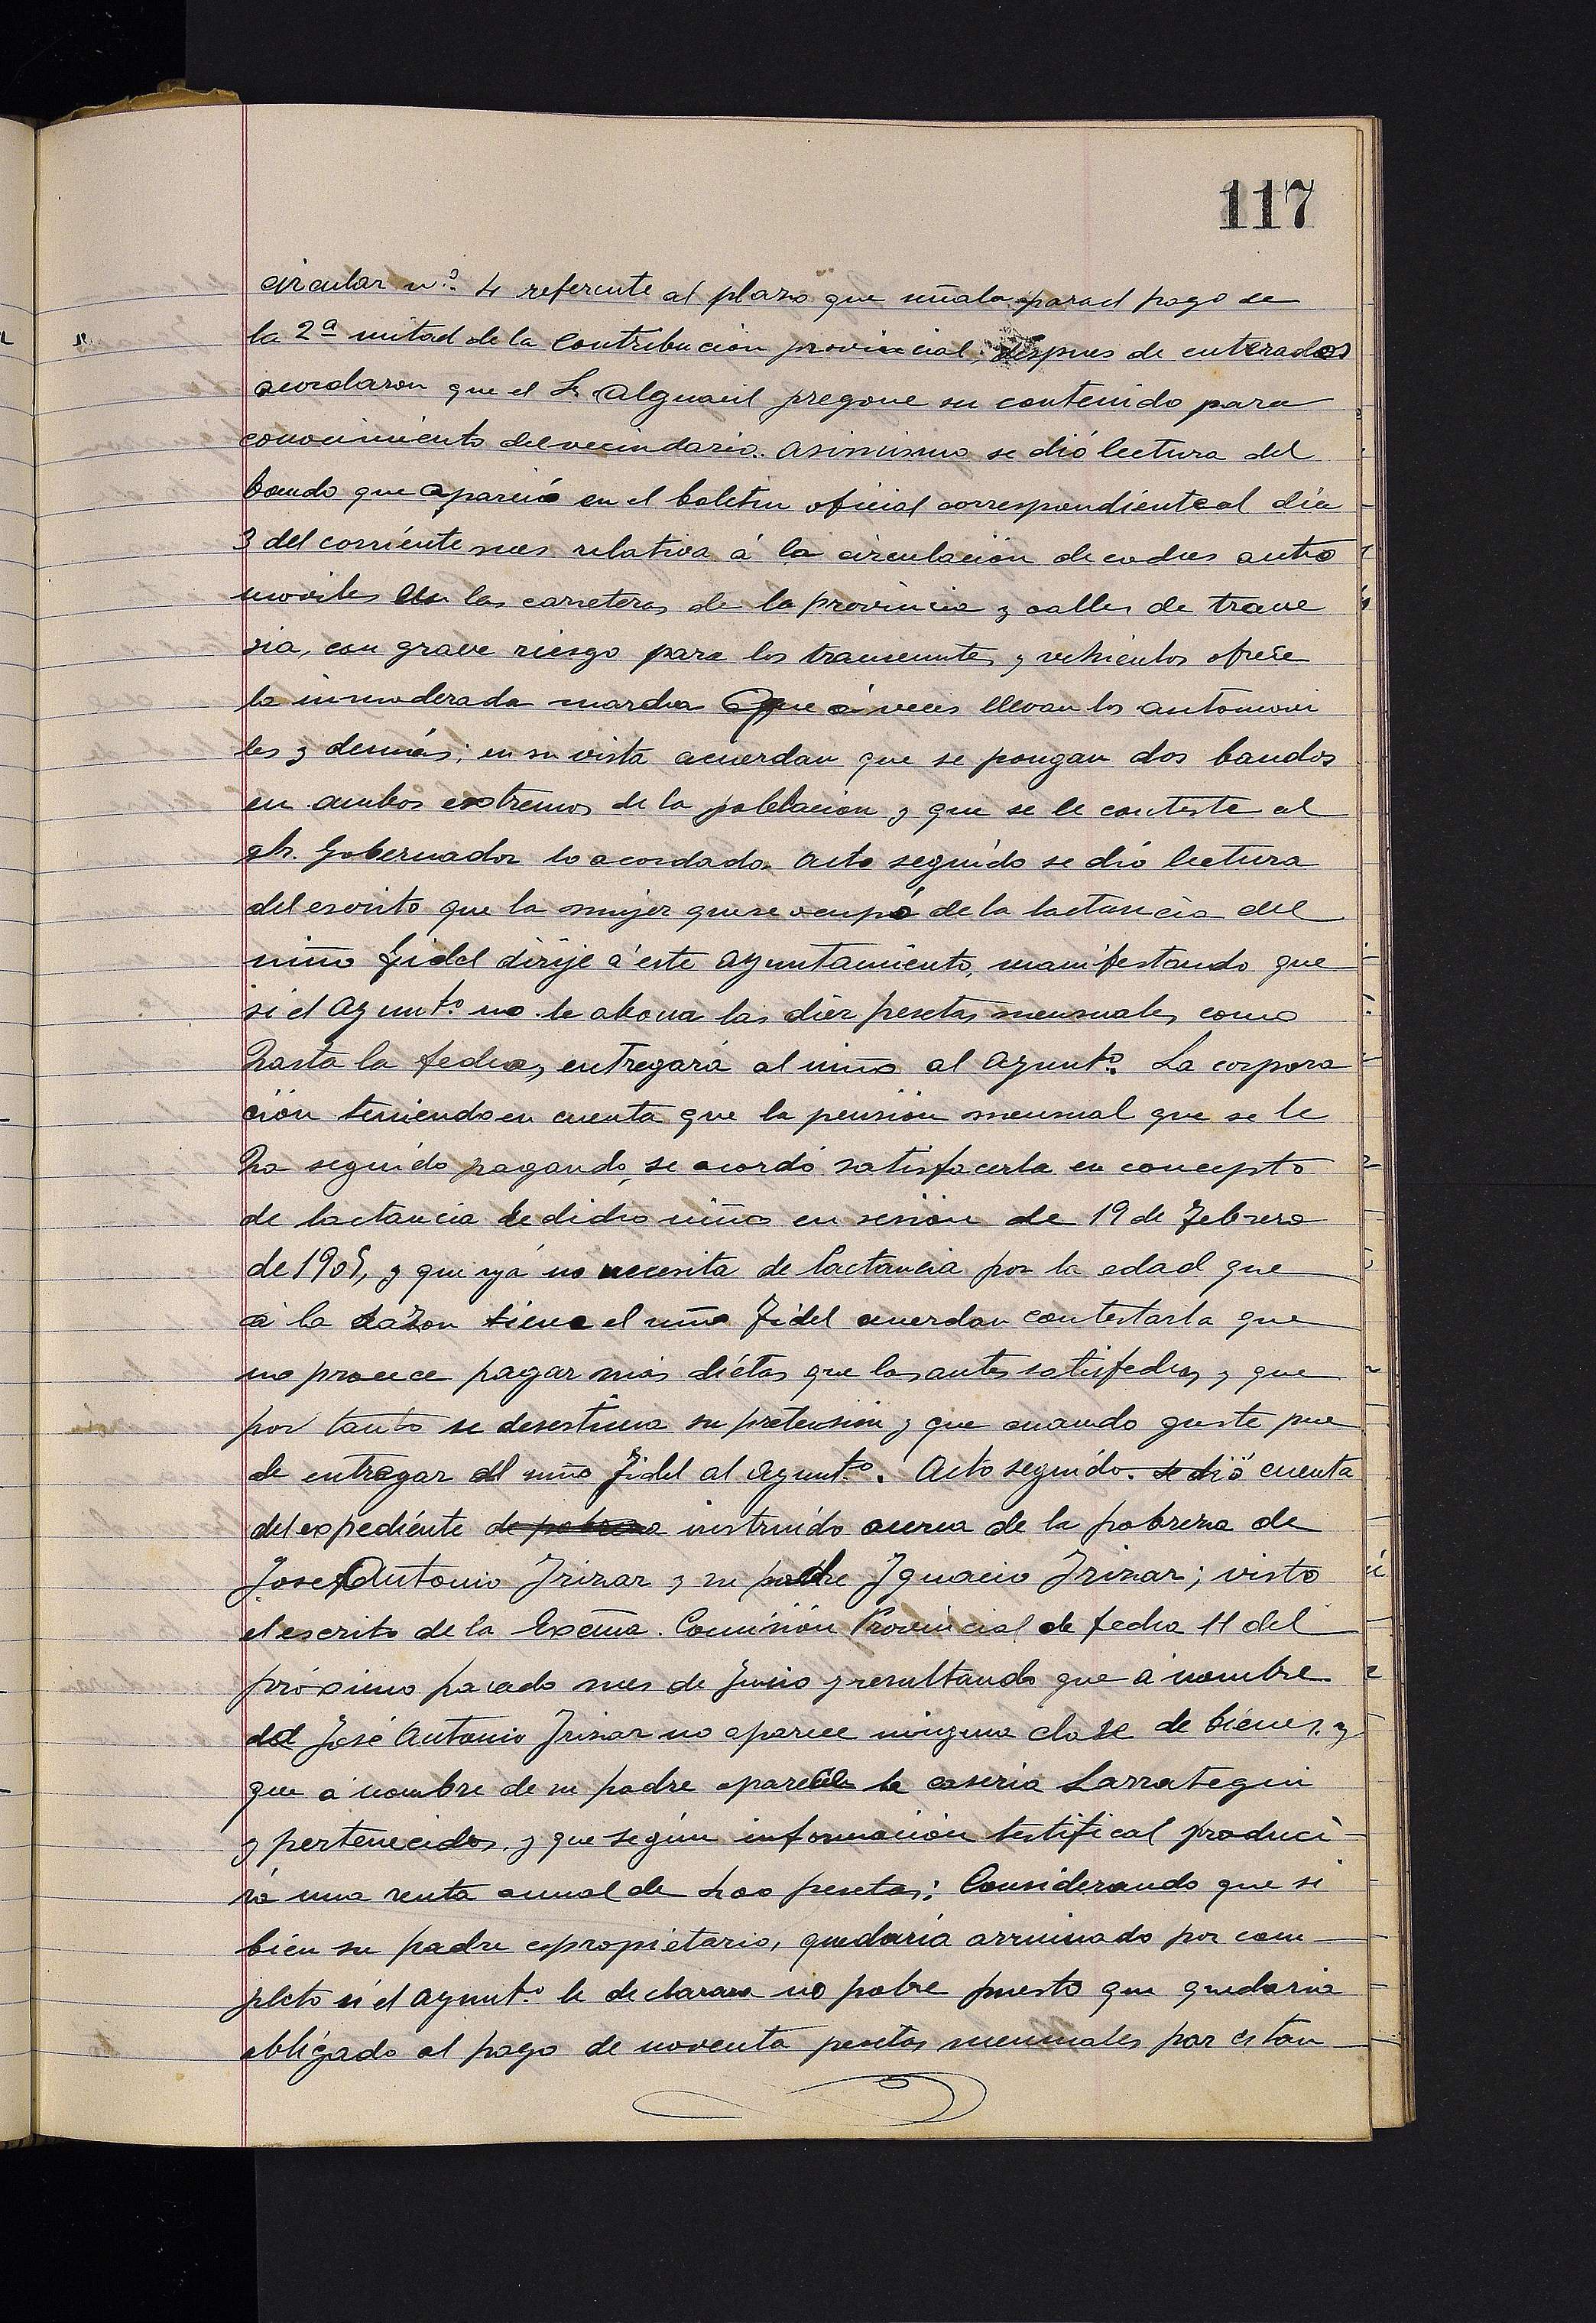 117
circular n.º 4 referente al plazo que señala para el pago de
la 2ª mitad de la contribución provincial, despues de enterados
acordaron que el Sr. Alguacil pregone su contenido para
conocimiento del vecindario. Asimismo se dió lectura del
bando que apareció en el boletin oficial correspondiente al día
3 del corriente mes relativa á la circulación de coches auto
moviles en las carreteras de la provincia y calles de trave
sia, con grave riesgo para los transeuntes y vehiculos ofrece
la inmoderada marcha que á veces llevan los automovi
les y demás; en su vista acuerdan que se pongan dos bandos
en ambos extremos de la poblacion y que se le conteste al
Sr. Gobernador lo acordado. Acto seguido se dió lectura
del escrito que la mujer que se ocupó de la lactancia del
niño Fidel dirije á este Ayuntamiento, manifestando que
si el Ayunt.º no le abona las diez pesetas mensuales como
hasta la fecha, entregará al niño al Ayunt.º La corpora
ción teniendo en cuenta que la pensión mensual que se le
ha seguido pagando, se acordó satisfacerla en concepto
de lactancia de dicho niño en sesión de 19 de Febrero
de 1905, y que yá no necesita de lactancia por la edad que
á la sazon tiene el niño Fidel acuerdan contestarla que
no procece pagar más diétas que las antes satisfechas y que
por tanto se desestima su pretensión y que cuando guste pue
de entregar al niño Fidel al Ayunt.º. Acto seguido. se dió cuenta
del expediénte de pobreza instruído acerca de la pobreza de
José Antonio Irizar y su padre Ignacio Irizar; visto
el escrito de la Excma. Comisión Provincial de fecha 11 del
próximo pasado mes de Junio y resultando que á nombre
del José Antonio Irizar no aparece ninguna clase de bienes. y
que á nombre de su padre aparece la caseria Larrategui
y pertenecidos, y que según información testifical produci-
rá una renta anual de 400 pesetas; Considerando que si
bién su padre es propietario, quedaría arruinado por com-
pleto si el Ayunt.º le declarara no pobre puesto que quedaria
obligado al pago de noventa pesetas mensuales por estan-